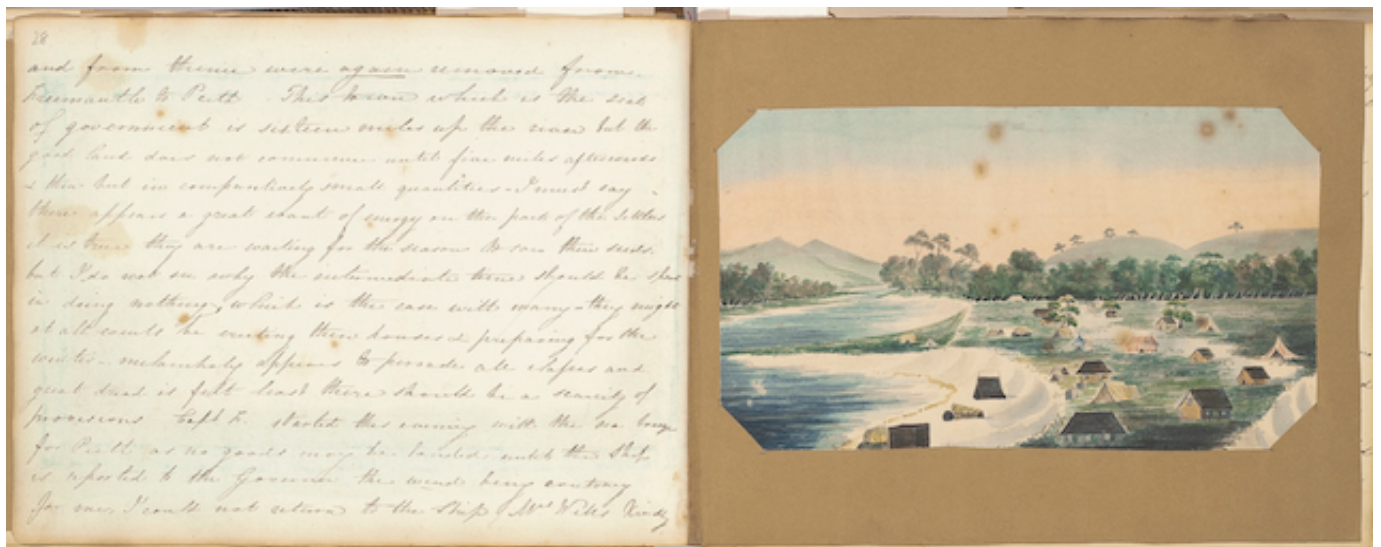 28
and from thence were again removed from
Freemantle to Perth. This town which is the seat
of government is sixteen miles up the river but the
good land does not commence until five miles afterwards
& then but in comparatively small quantities - I must say
there appears a great want of energy on the part of the settlers
it is true they are waiting for the season to sow their seeds.
but I do not see why the intermediate time should be spent
in doing nothing, which is the case with many - they might
at all events be erecting their houses & preparing for the
winter - melancholy appears to pervade all classes and
great dread is felt least there should be a scarcity of
provisions Capt F. started this evening with the sea breeze
for Perth as no goods may be landed until the Ship
is reported to the Governor the wind being contrary
for me, I could not return to the Ship Mrs Wells kindly